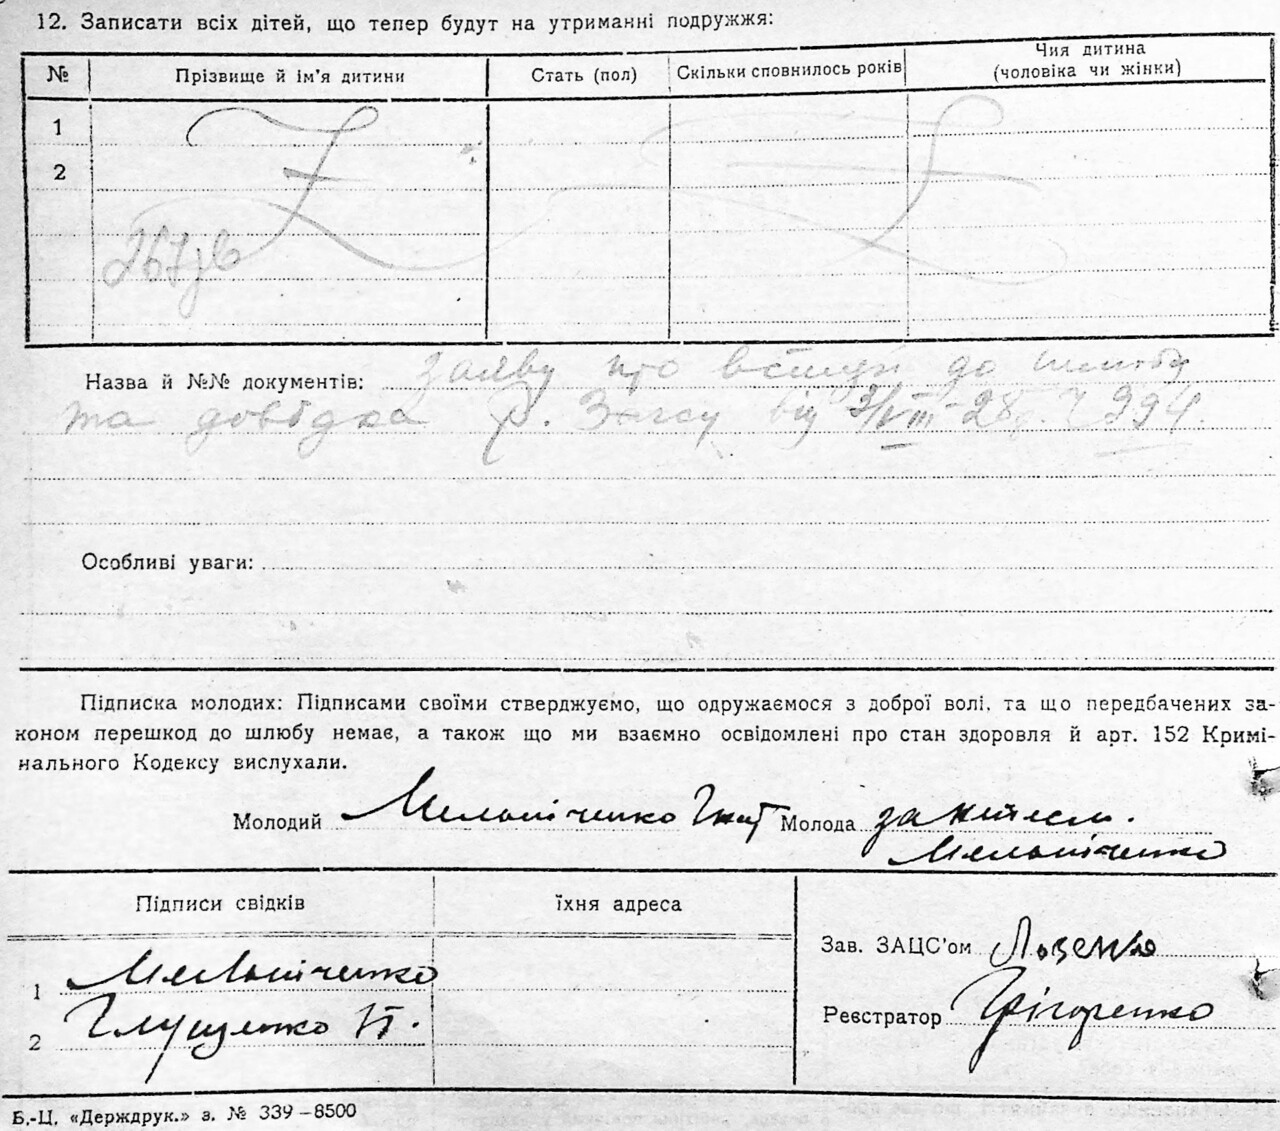 12. Записати всіх дітей, що тепер будут на утриманні подружжя:
№ Прізвище й ім'я дитини Стать (пол) Скільки сповнилось років Чия дитина (чоловіка чи жінки)
1
2
Назва й №№ документів: заяву про вступ до шлюбу
та довідка р. Загсу від 3/VIII-28р. Ч 994.
Особливі уваги:
Підписка молодих: Підписами своїми стверджуємо, що одружаємося з доброї волі, та що передбачених за-
коном перешкод до шлюбу немає, а також що ми взаємно освідомлені про стан здоровля й арт. 152 Кримі-
нального Кодексу вислухали.
Молодий Мельніченко Гнат Молода за
Мельніченко
Підписи свідків їхня адреса
Зав. ЗАЦС'ом
1 Мельніченко
Реєстратор Грігоренко
2 Глущенко П.
Б.-Ц. «Держдрук.» з. № 339–8500